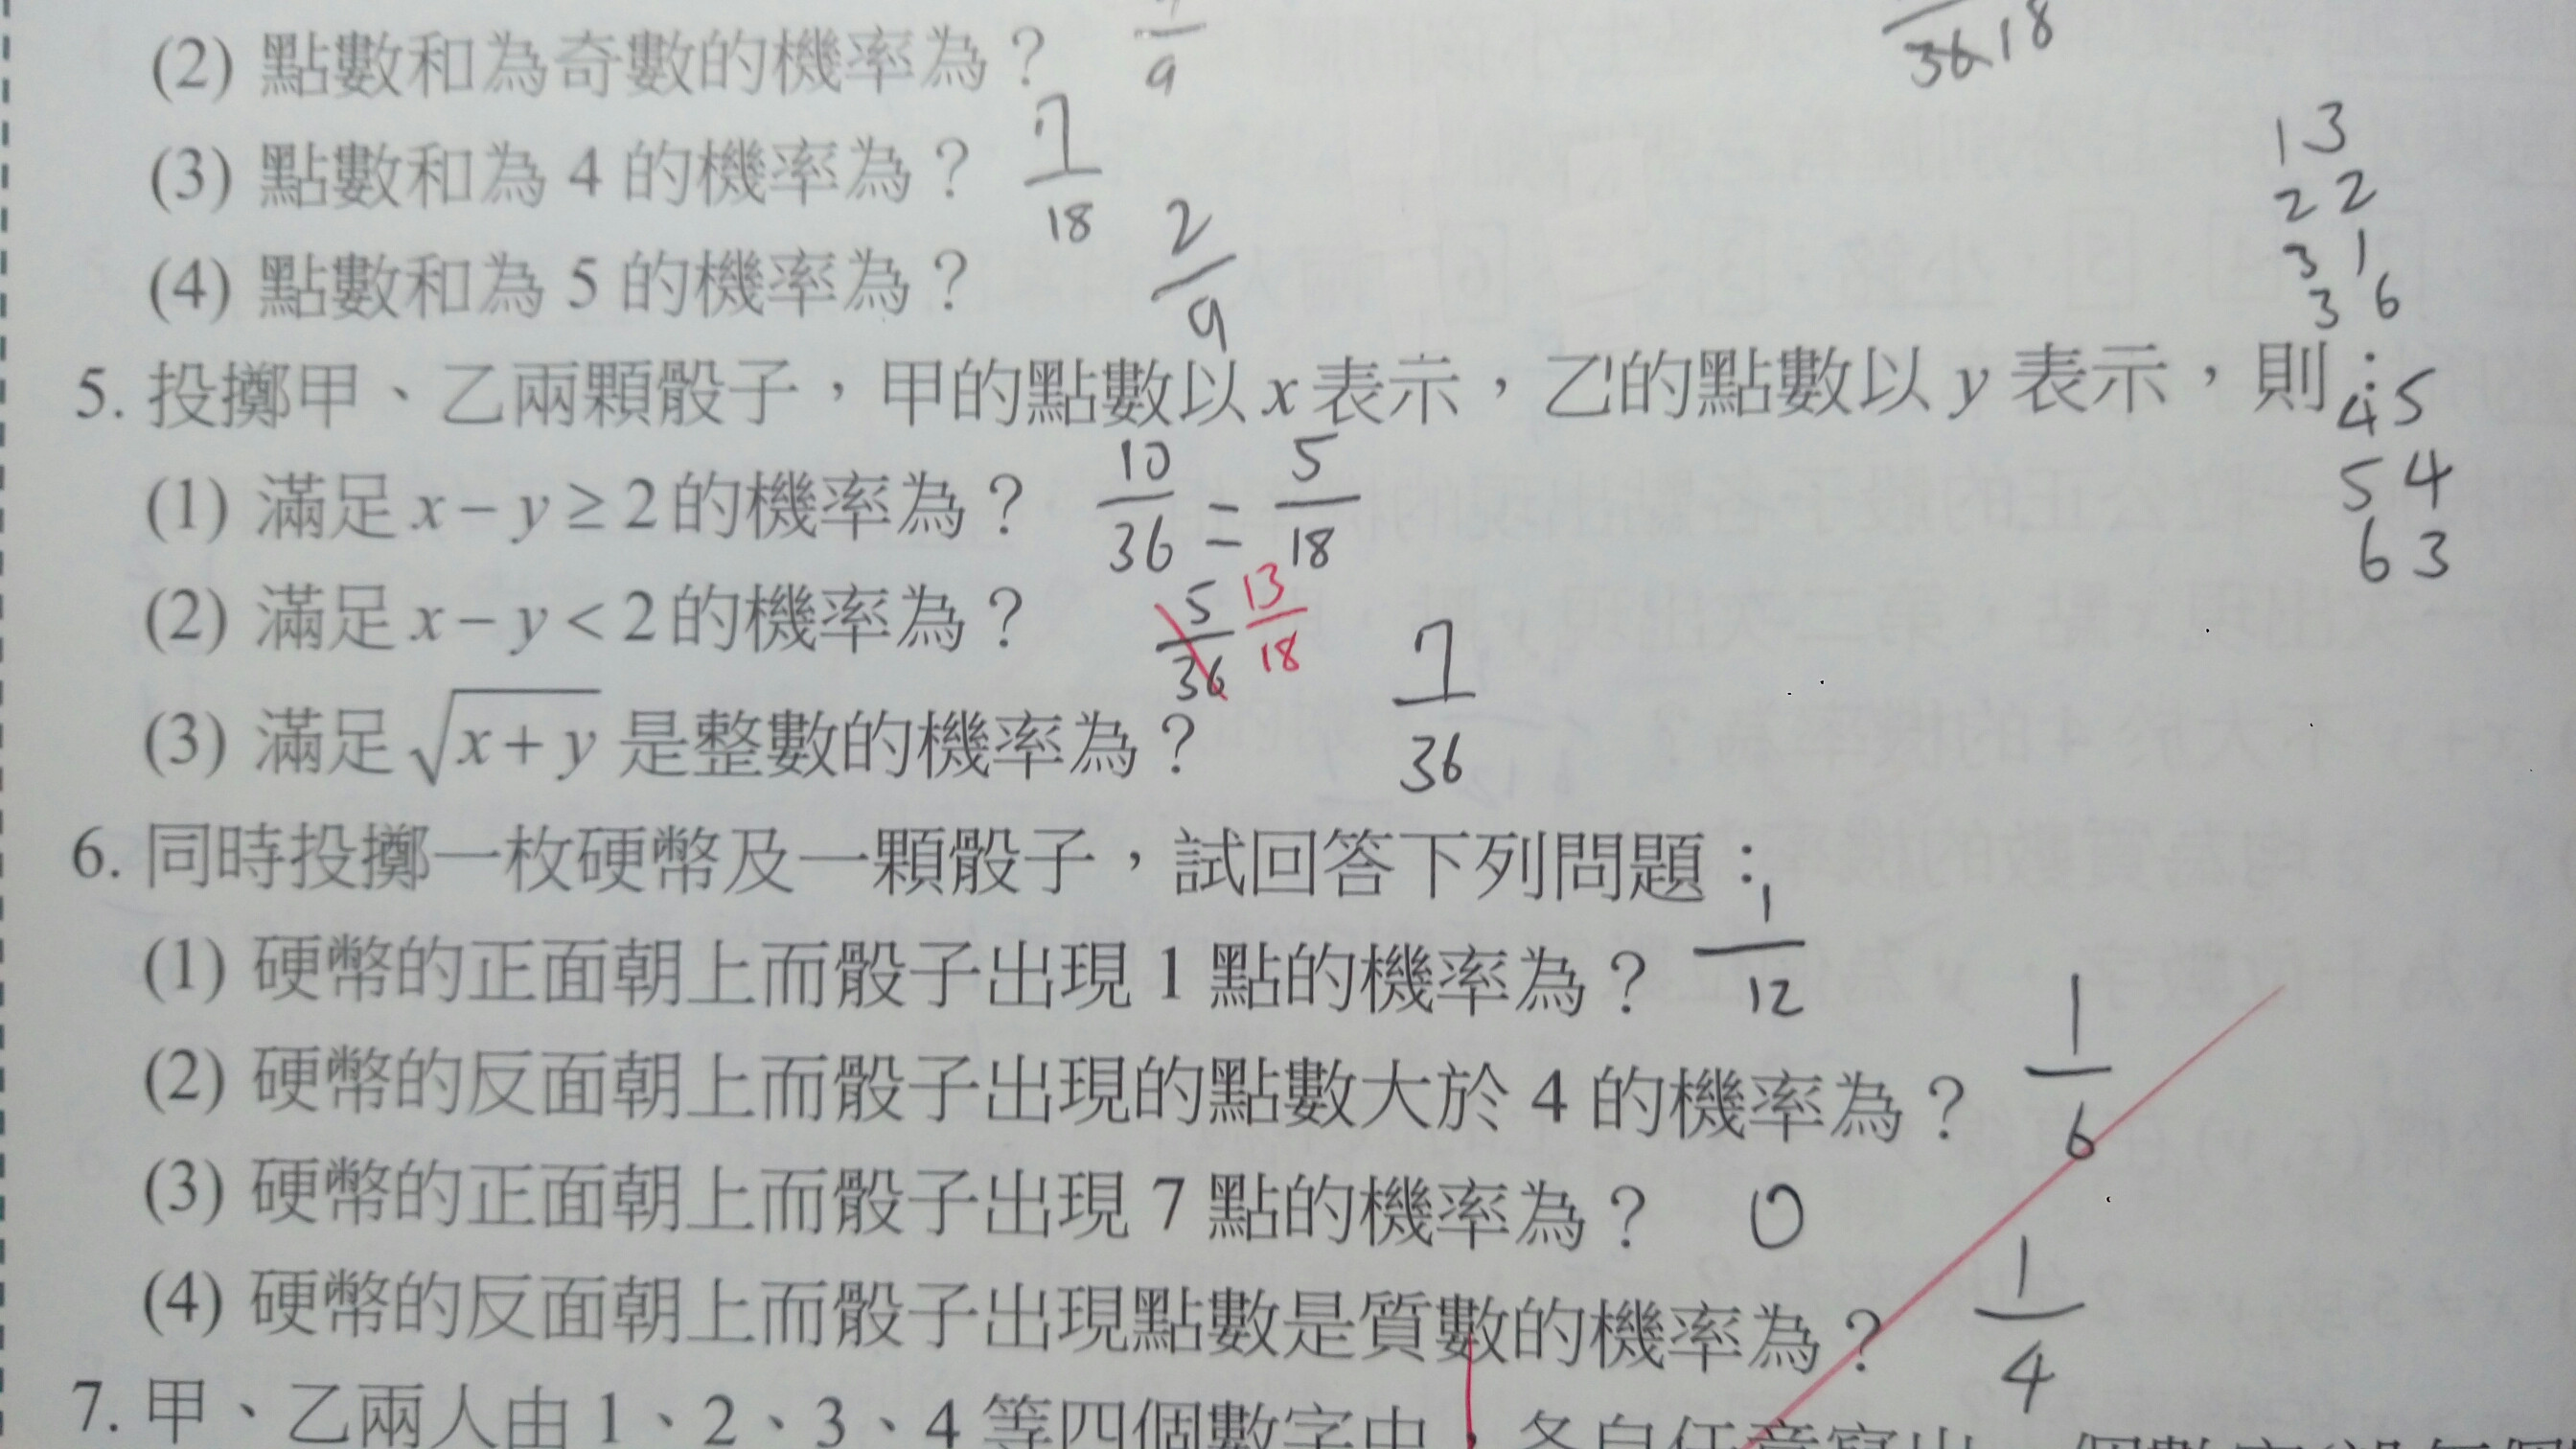 (2) 點數和為奇數的機率為？ 9
36 18
(3) 點數和為 4 的機率為？ 7/18
1 3
2 2
3 1
(4) 點數和為 5 的機率為？ 2/9
3 6
5. 投擲甲、乙兩顆骰子，甲的點數以 x 表示，乙的點數以 y 表示，則：
4 5
5 4
6 3
(1) 滿足 x − y ≥ 2 的機率為？ 10/36 = 5/18
(2) 滿足 x − y < 2 的機率為？ 5/36 13/18
(3) 滿足 √(x + y) 是整數的機率為？ 7/36
6. 同時投擲一枚硬幣及一顆骰子，試回答下列問題：
(1) 硬幣的正面朝上而骰子出現 1 點的機率為？ 1/12
(2) 硬幣的反面朝上而骰子出現的點數大於 4 的機率為？ 1/6
(3) 硬幣的正面朝上而骰子出現 7 點的機率為？ 0
(4) 硬幣的反面朝上而骰子出現點數是質數的機率為？ 1/4
7. 甲、乙兩人由 1、2、3、4 等四個數字中，各自任意寫出一個數字